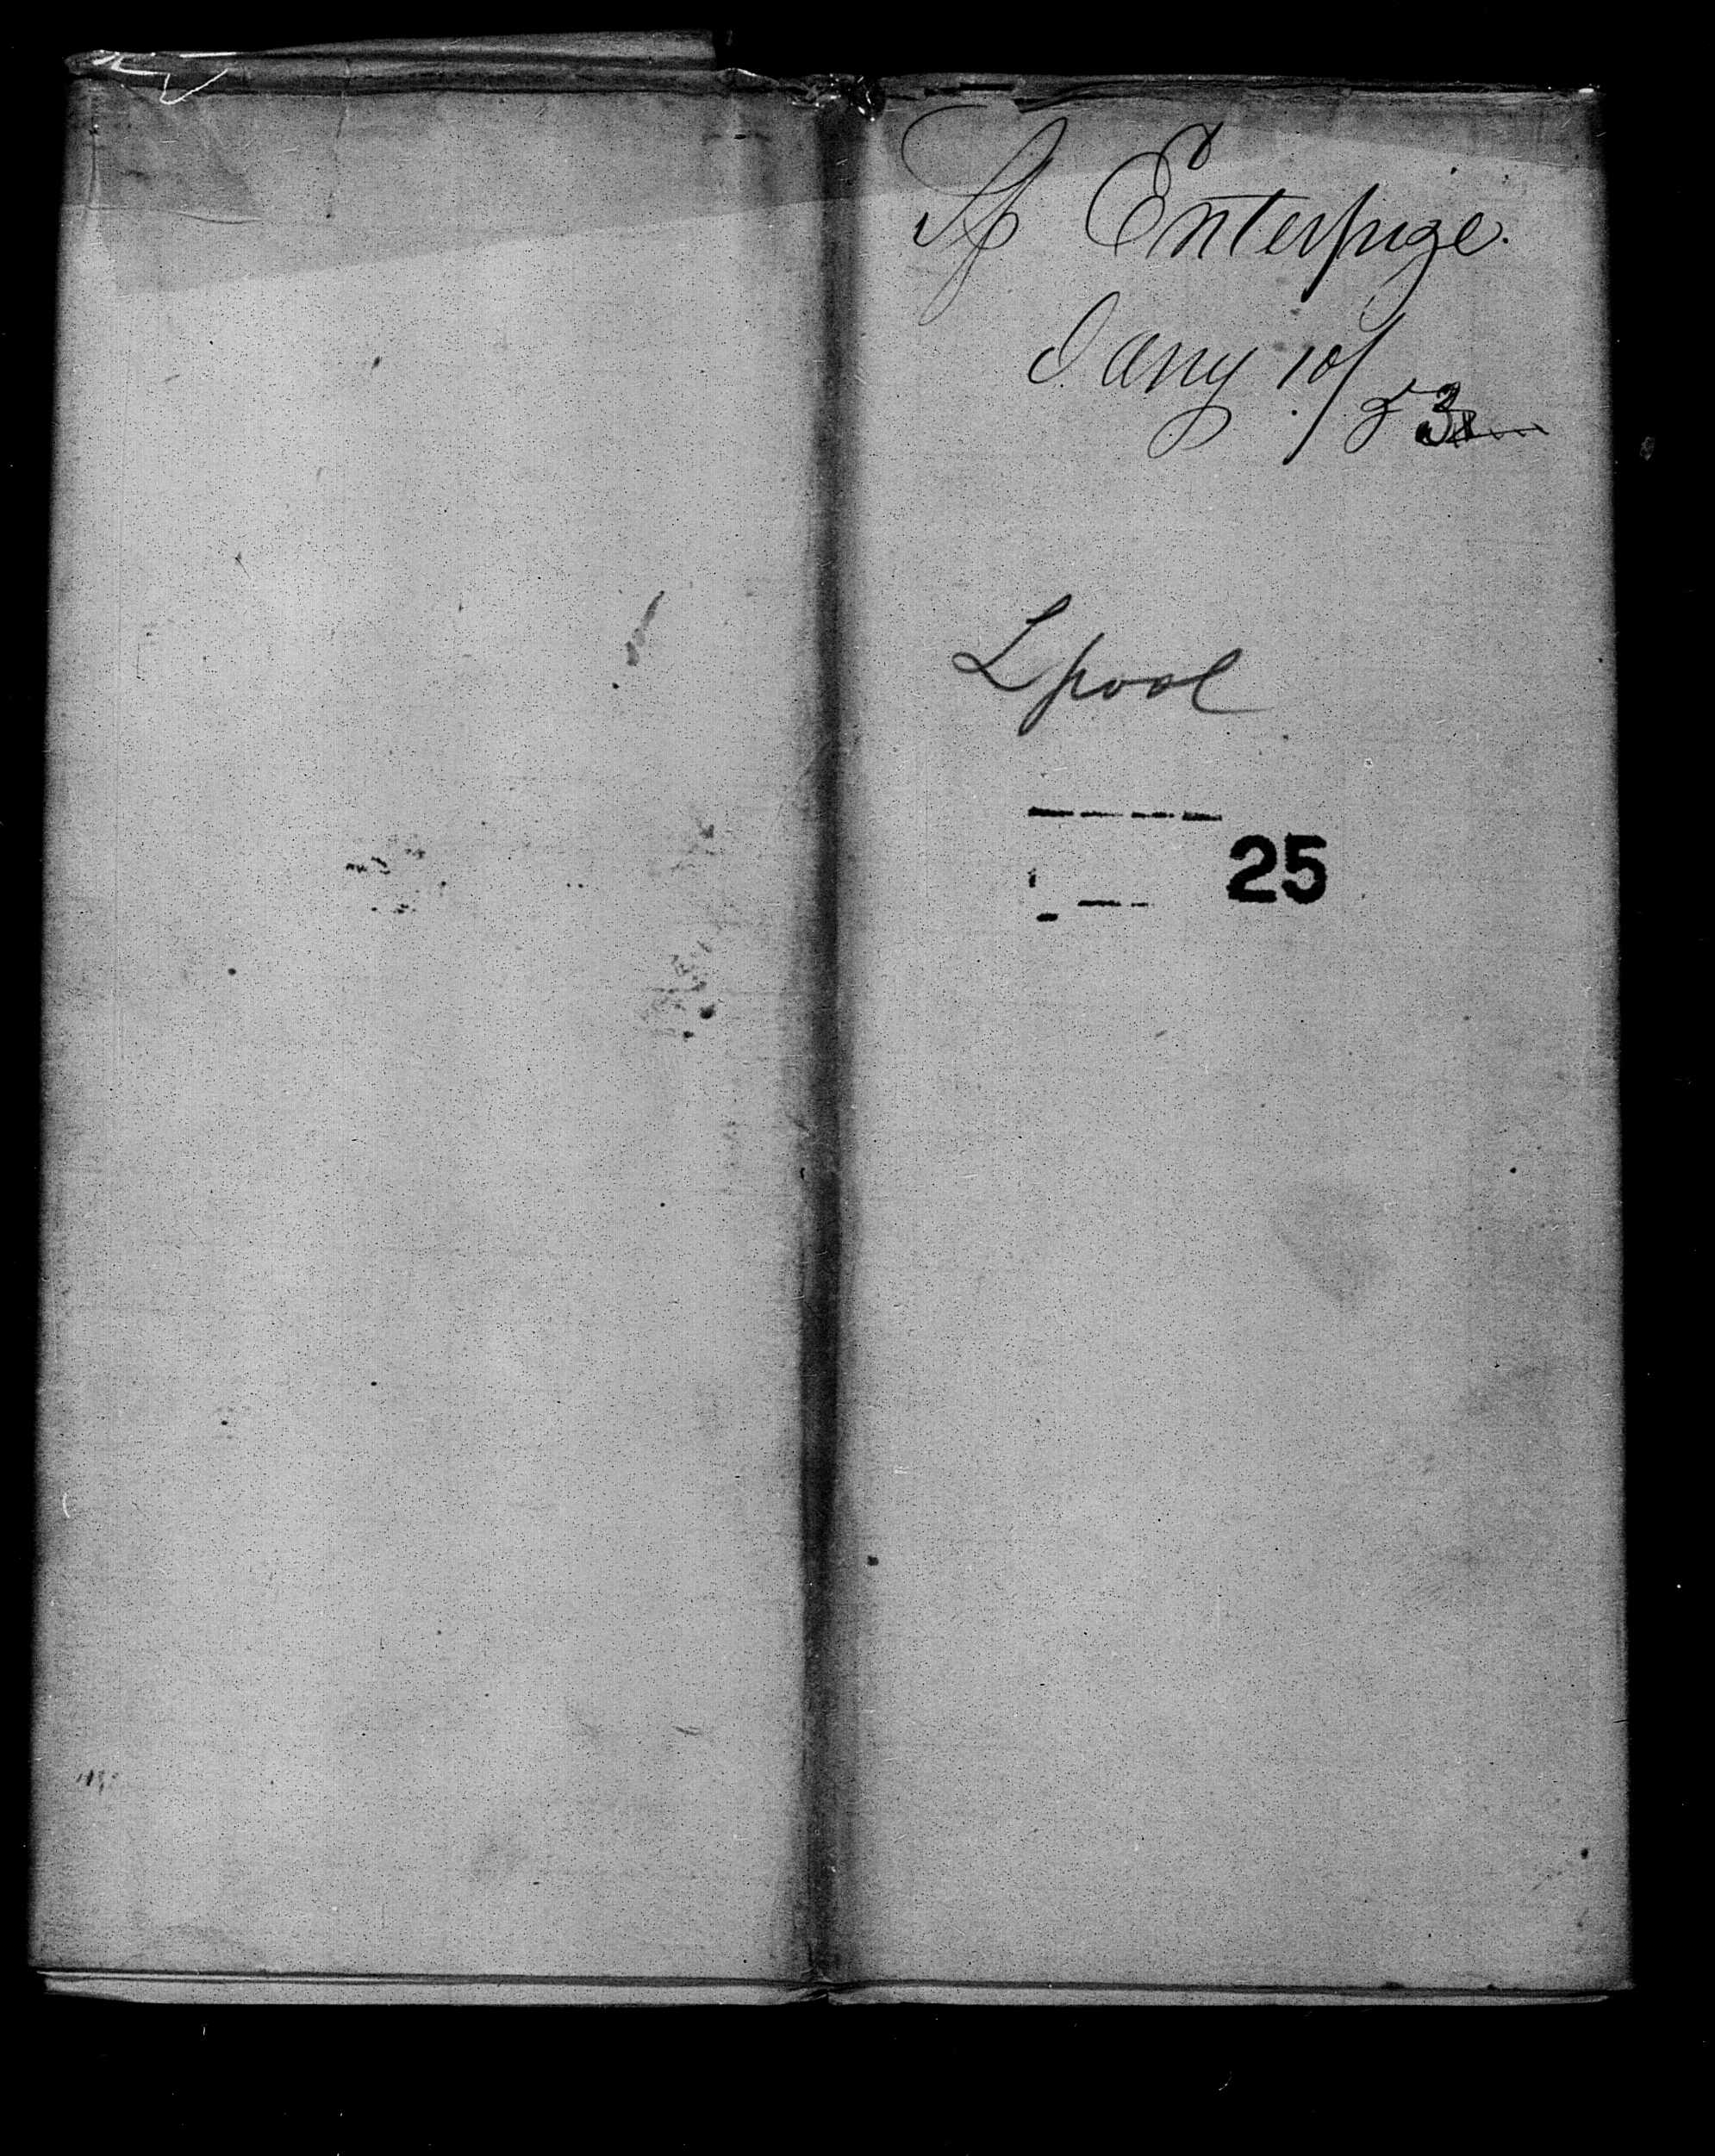 Sp Enterprize.
Jany 10/53
Lpool
25